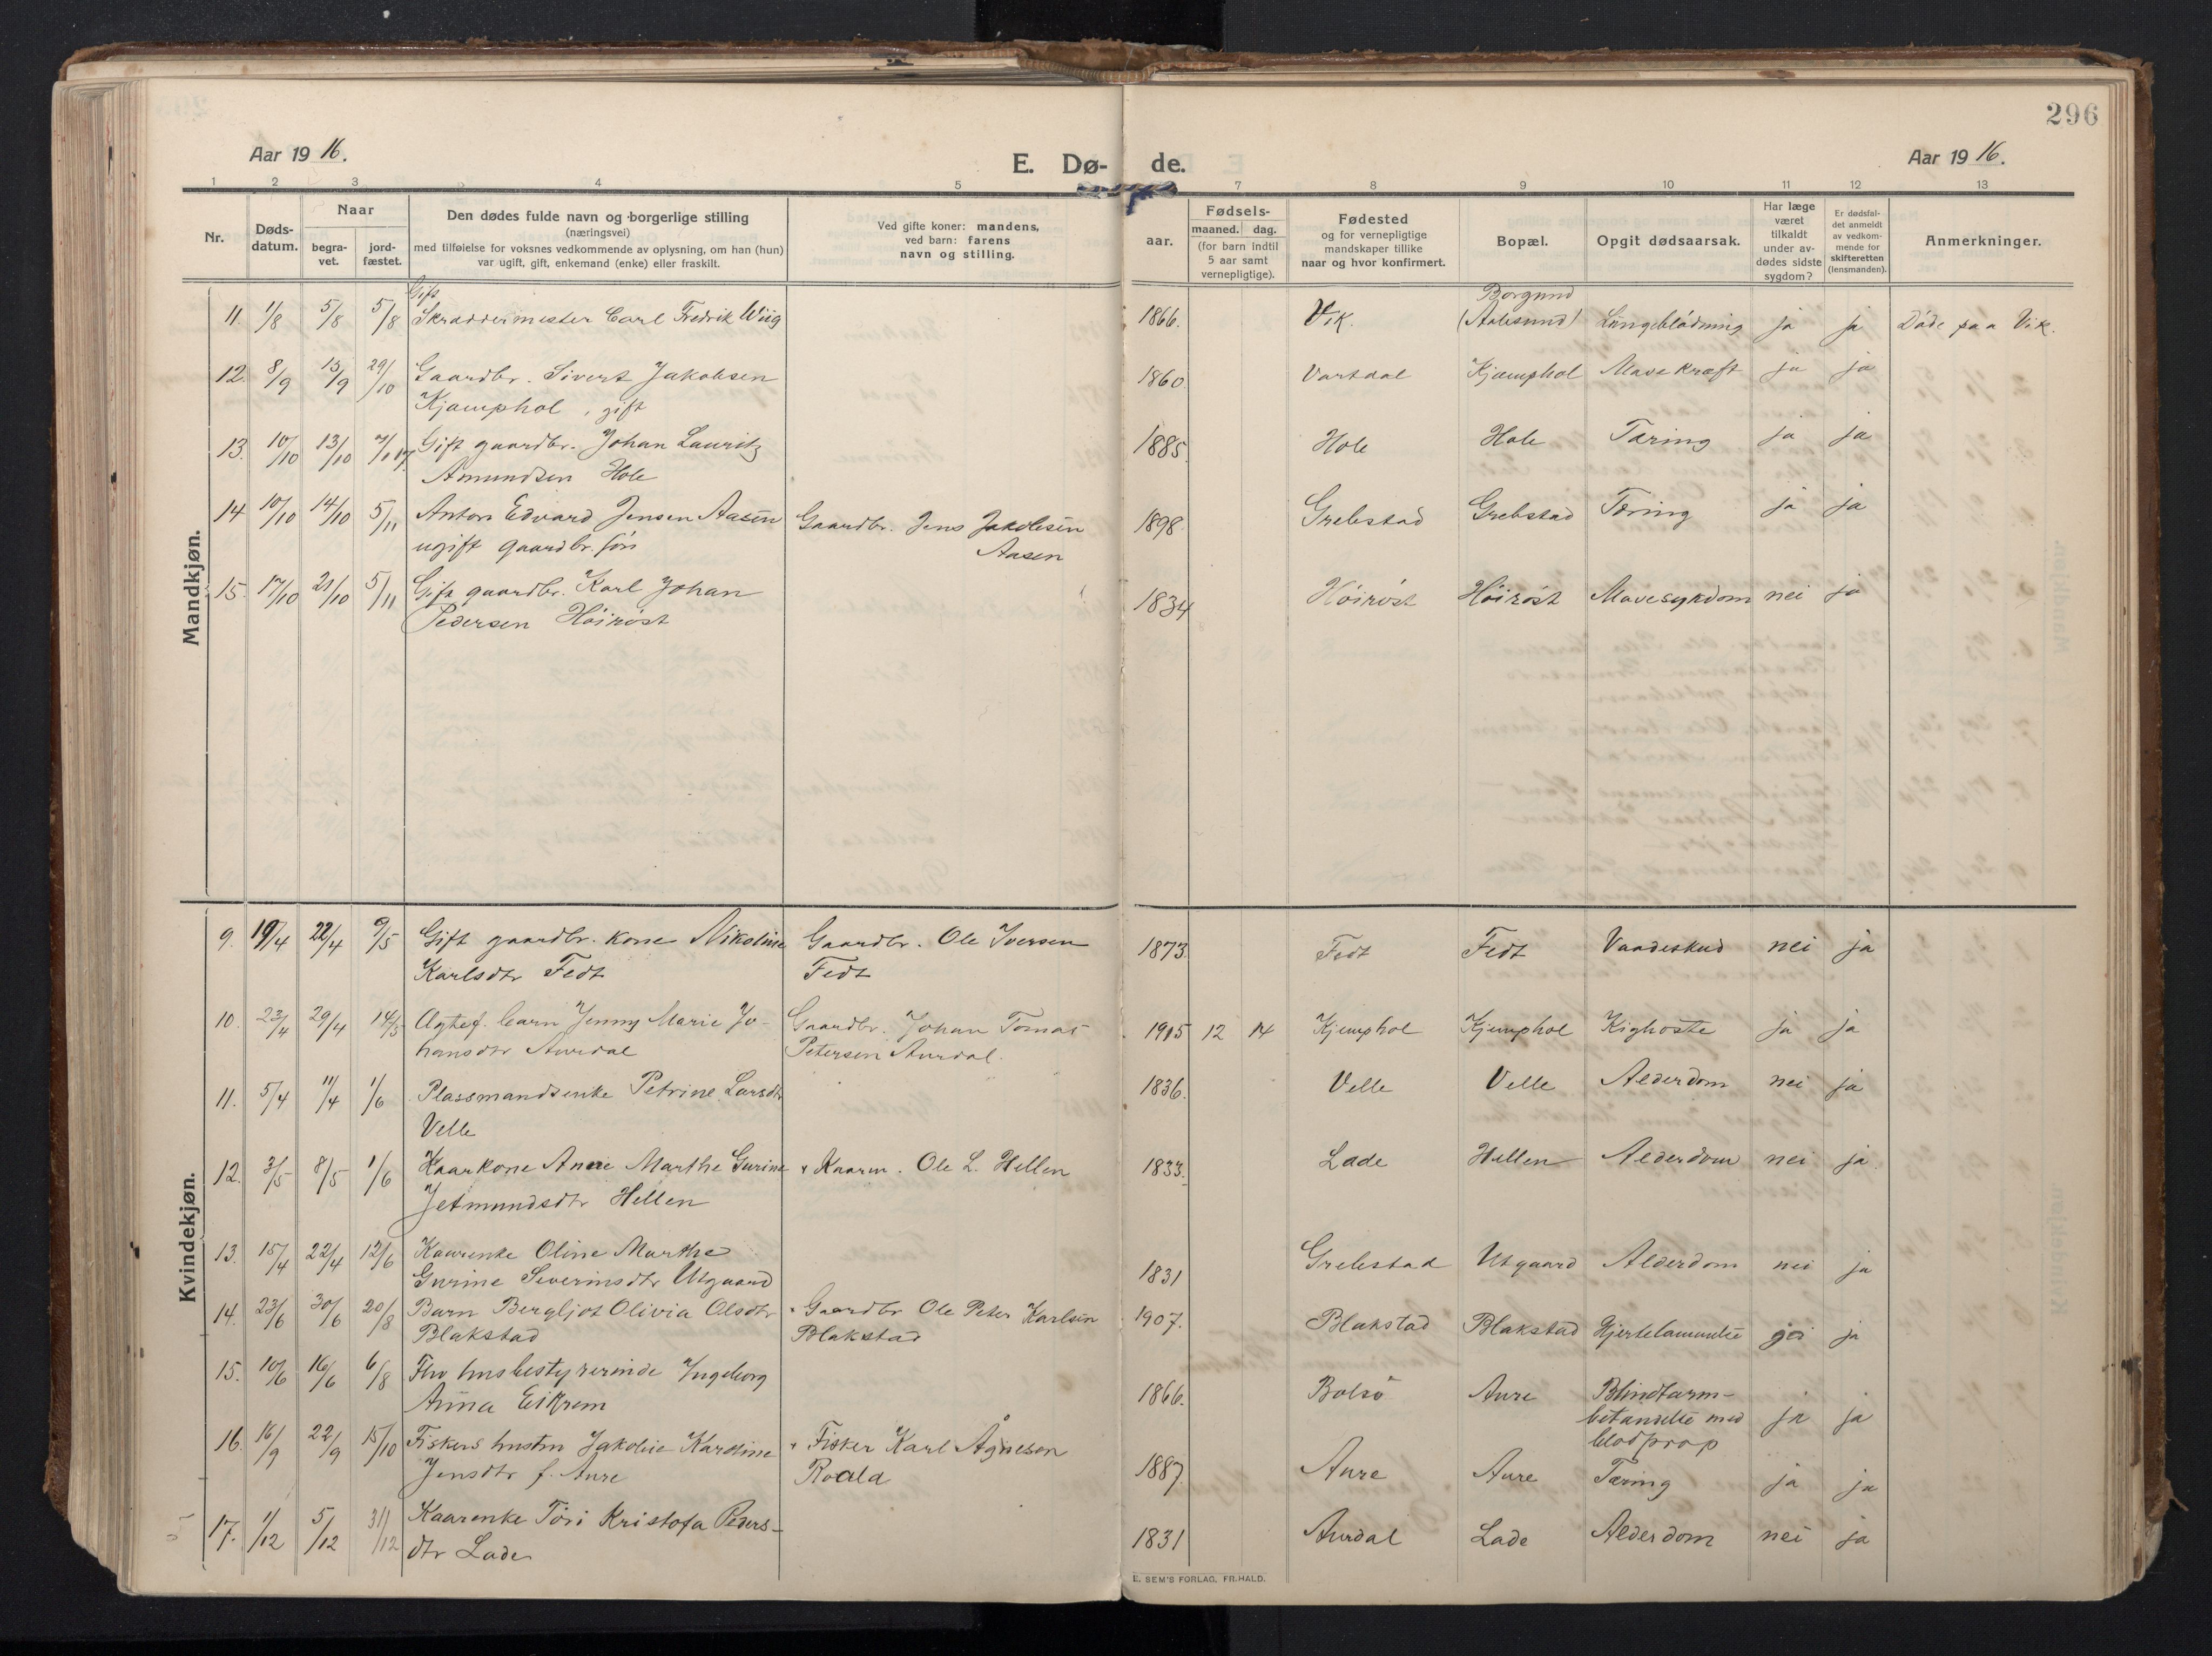 296
Aar 19 16.
E. Dø-
de.
Aar 19 16.
1 2 3 4 5 7 8 9 10 11 12 13
Nr.
Døds-
datum.
Naar
begra-
vet.
jord-
fæstet.
Den dødes fulde navn og borgerlige stilling
(næringsvei)
med tilføielse for voksnes vedkommende av oplysning, om han (hun)
var ugift, gift, enkemand (enke) eller fraskilt.
Ved gifte koner: mandens,
ved barn: farens
navn og stilling.
aar.
Fødsels-
maaned. dag.
(for barn indtil
5 aar samt
vernepligtige).
Fødested
og for vernepligtige
mandskaper tillike
naar og hvor konfirmert.
Bopæl.
Opgit dødsaarsak.
Har læge
været
tilkaldt
under av-
dødes sidste
sygdom?
Er dødsfal-
det anmeldt
av vedkom-
mende for
skifteretten
(lensmanden).
Anmerkninger.
Mandkjøn.
Gift Borgund
11. 1/8 5/8 5/8 Skræddermester Carl Fredrik Wiig 1866. Vik. (Aalesund) Lungeblødning ja ja Døde paa Vik.
12. 8/9 13/9 29/10 Gaardbr. Sivert Jakobsen 1860 Vartdal Kjæmphol Mavekræft ja ja
Kjæmphol, gift
13. 10/10 13/10 7/1 17. Gift gaardbr. Johan Lauritz 1885 Hole Hole Tæring ja ja
Amundsen Hole
14 10/10 14/10 5/11 Anton Edvard Jensen Aasen Gaardbr. Jens Jakobsen 1898. Grebstad Grebstad Tæring ja ja
ugift gaardbr. søn Aasen
15. 17/10 21/10 5/11 Gift gaardbr. Karl Johan 1834 Høirøst Høirøst Mavesygdom nei ja
Pedersen Høirøst
Kvindekjøn.
9. 19/4 22/4 9/5 Gift gaardbr. kone Nikoline Gaardbr. Ole Iversen 1873. Fedt Fedt Vaadeskud nei ja
Karlsdtr Fedt Fedt
10. 23/4 29/4 14/5 Ægtef. barn Jenny Marie Jo- Gaardbr. Johan Tomas 1915 12 14 Kjemphol Kjemphol Kighoste ja ja
hansdtr Aurdal Petersen Aurdal.
11. 5/4 11/4 1/6 Plassmandsenke Petrine Larsdtr 1836. Velle Velle Alderdom nei ja
Velle
12. 3/5 8/5 1/6 Kaarkone Anne Marthe Gurine Kaarm. Ole L. Hellen 1833. Lade Hellen Alderdom nei ja.
Jetmundsdtr Hellen
13. 15/4 22/4 12/6 Kaarenke Oline Marthe
Gurine Severinsdtr Utgaard 1831 Grebstad Utgaard Alderdom nei ja
14. 23/6 30/6 20/8 Barn Bergljot Olivia Olsdtr Gaardbr Ole Peter Karlsen 1907. Blakstad Blakstad Hjertelammelse ja
Blakstad Blakstad
15. 10/6 16/6 6/8 Fhv husbestyrerinde Ingeborg 1866. Bolsø Aure Blindtarm-
Anna Eikrem betændelse med ja ja
blodprop
16. 16/9 22/9 15/10 Fiskers hustru Jakobie Karoline Fisker Karl Roald 1887. Aure Aure Tæring ja ja
Jensdtr f. Aure
17. 1/12 5/12 31/12 Kaarenke Tori Kristofa Peders- 1831 Aurdal Lade Alderdom nei ja
dtr Lade
E. SEM'S FORLAG, FR.HALD.